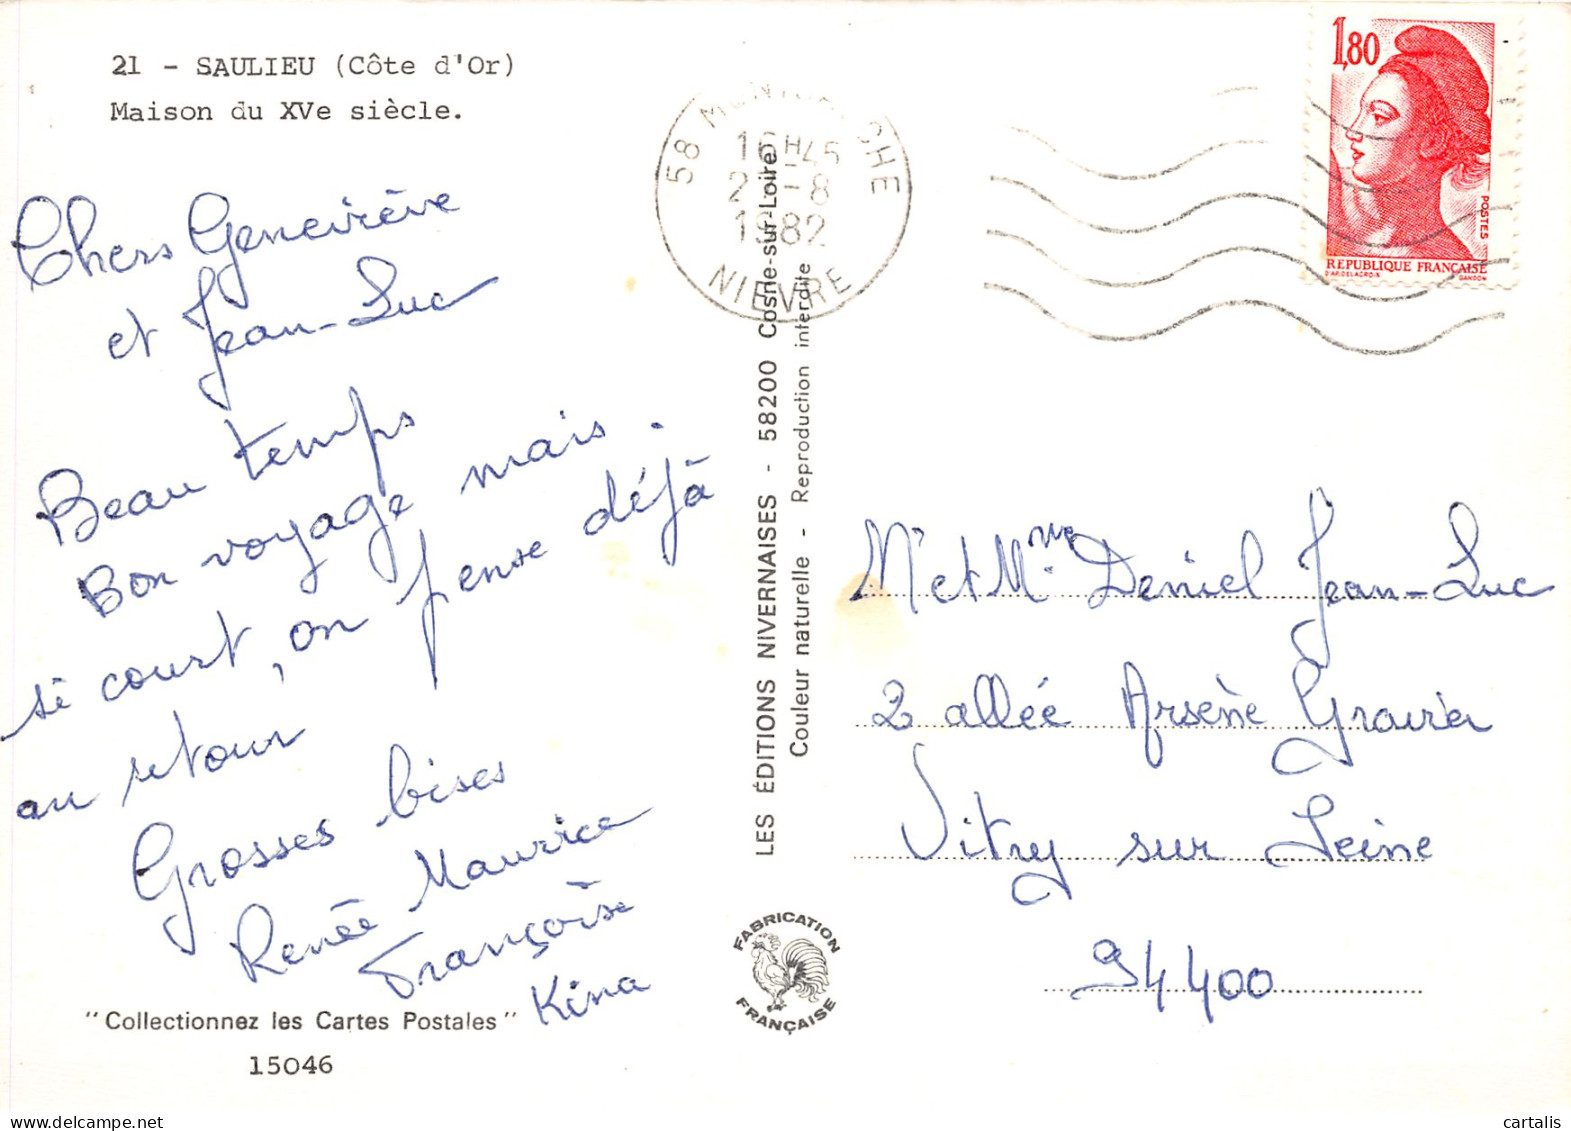 21 - SAULIEU (Côte d'Or)
Maison du XVe siècle.
Chers Geneviève
et Jean-Luc
Beau temps
Bon voyage mais.
si court, on pense déjà
au retour
Grosses bises
Renée Maurice
Françoise
Kina
"Collectionnez les Cartes Postales"
15046
LES ÉDITIONS NIVERNAISES - 58200 Cosne-sur-Loire
Couleur naturelle - Reproduction interdite
FABRICATION
FRANÇAISE
58
16H45
-8
1982
NIEVRE
1,80
POSTES
REPUBLIQUE FRANÇAISE
D'AP. DELACROIX
GANDON
Mr et Mme Deniel Jean-Luc
2 allée Arsène Gravier
Vitry sur Seine
94400
cartalis